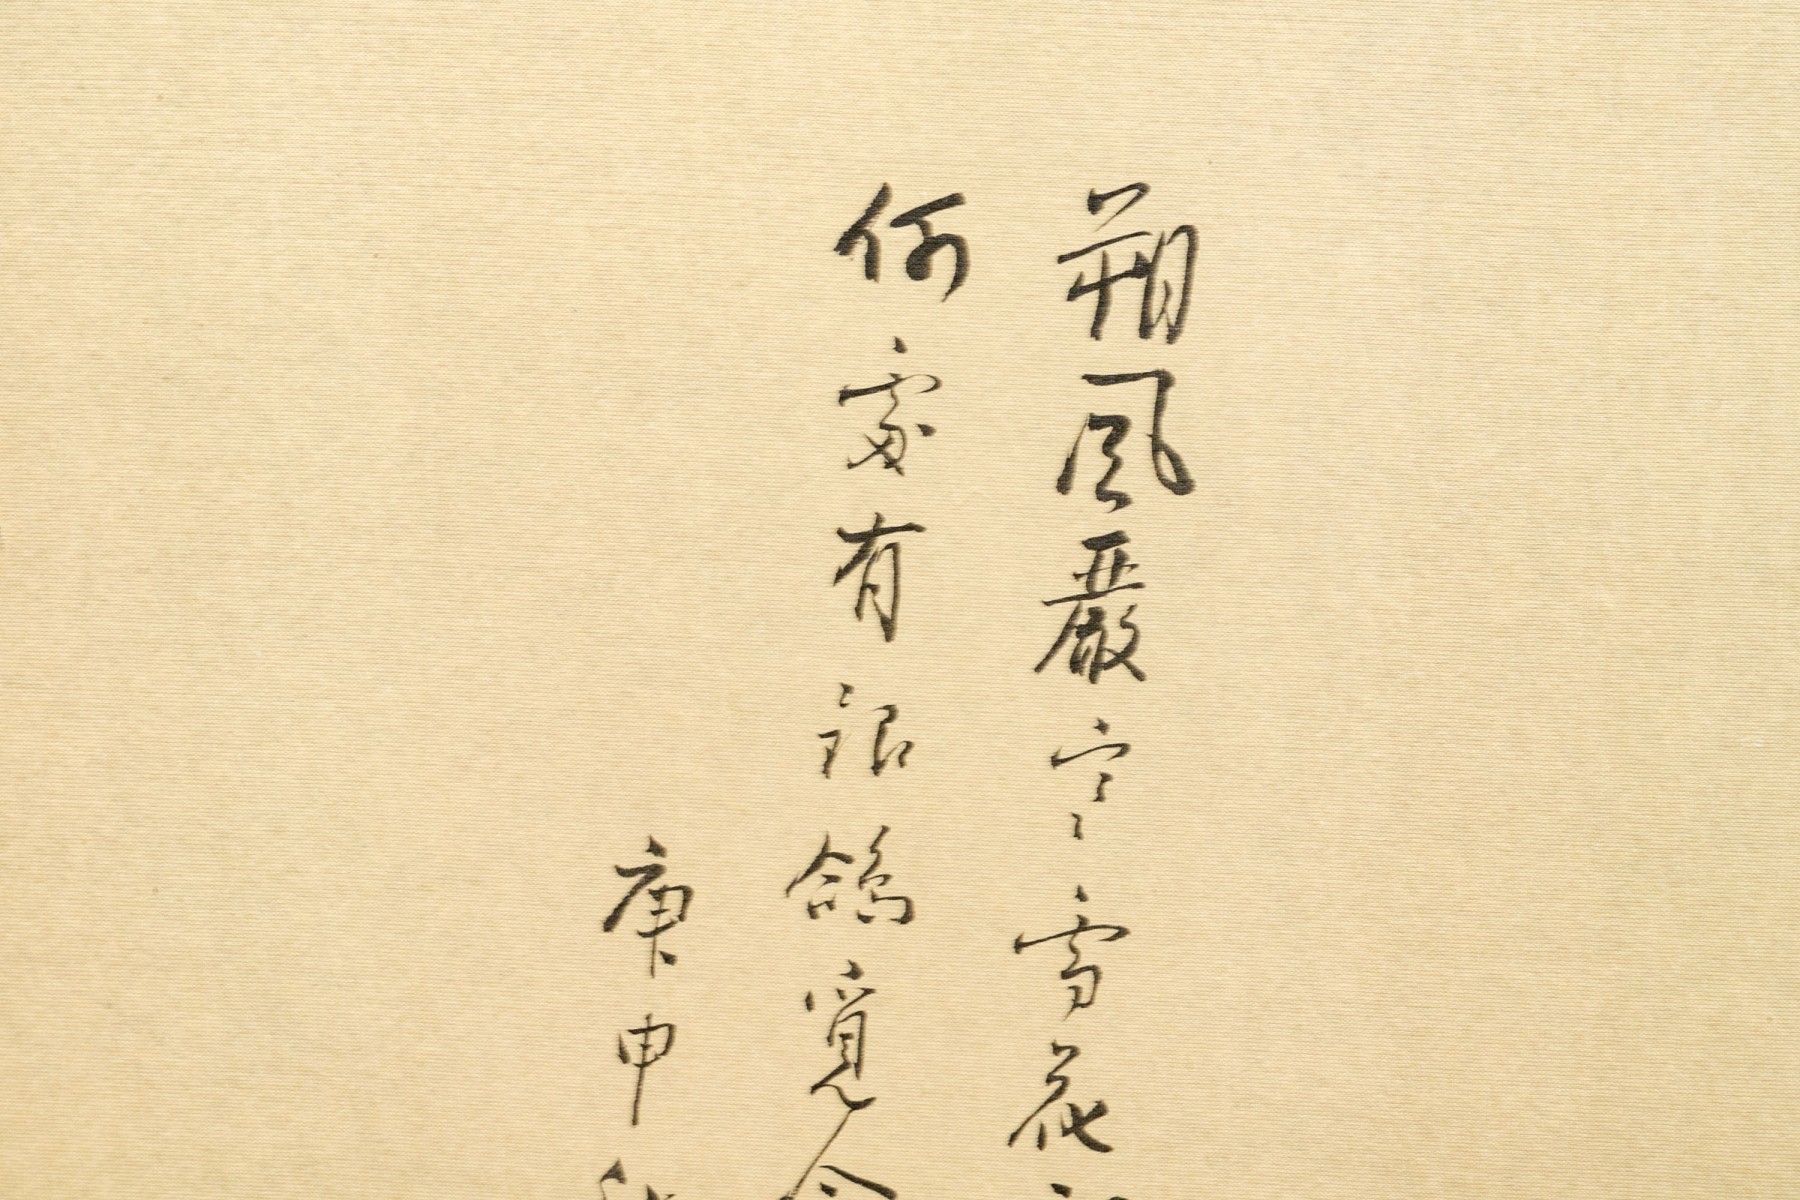 朔風嚴寒雪花
何處有銀鴿覓
庚申